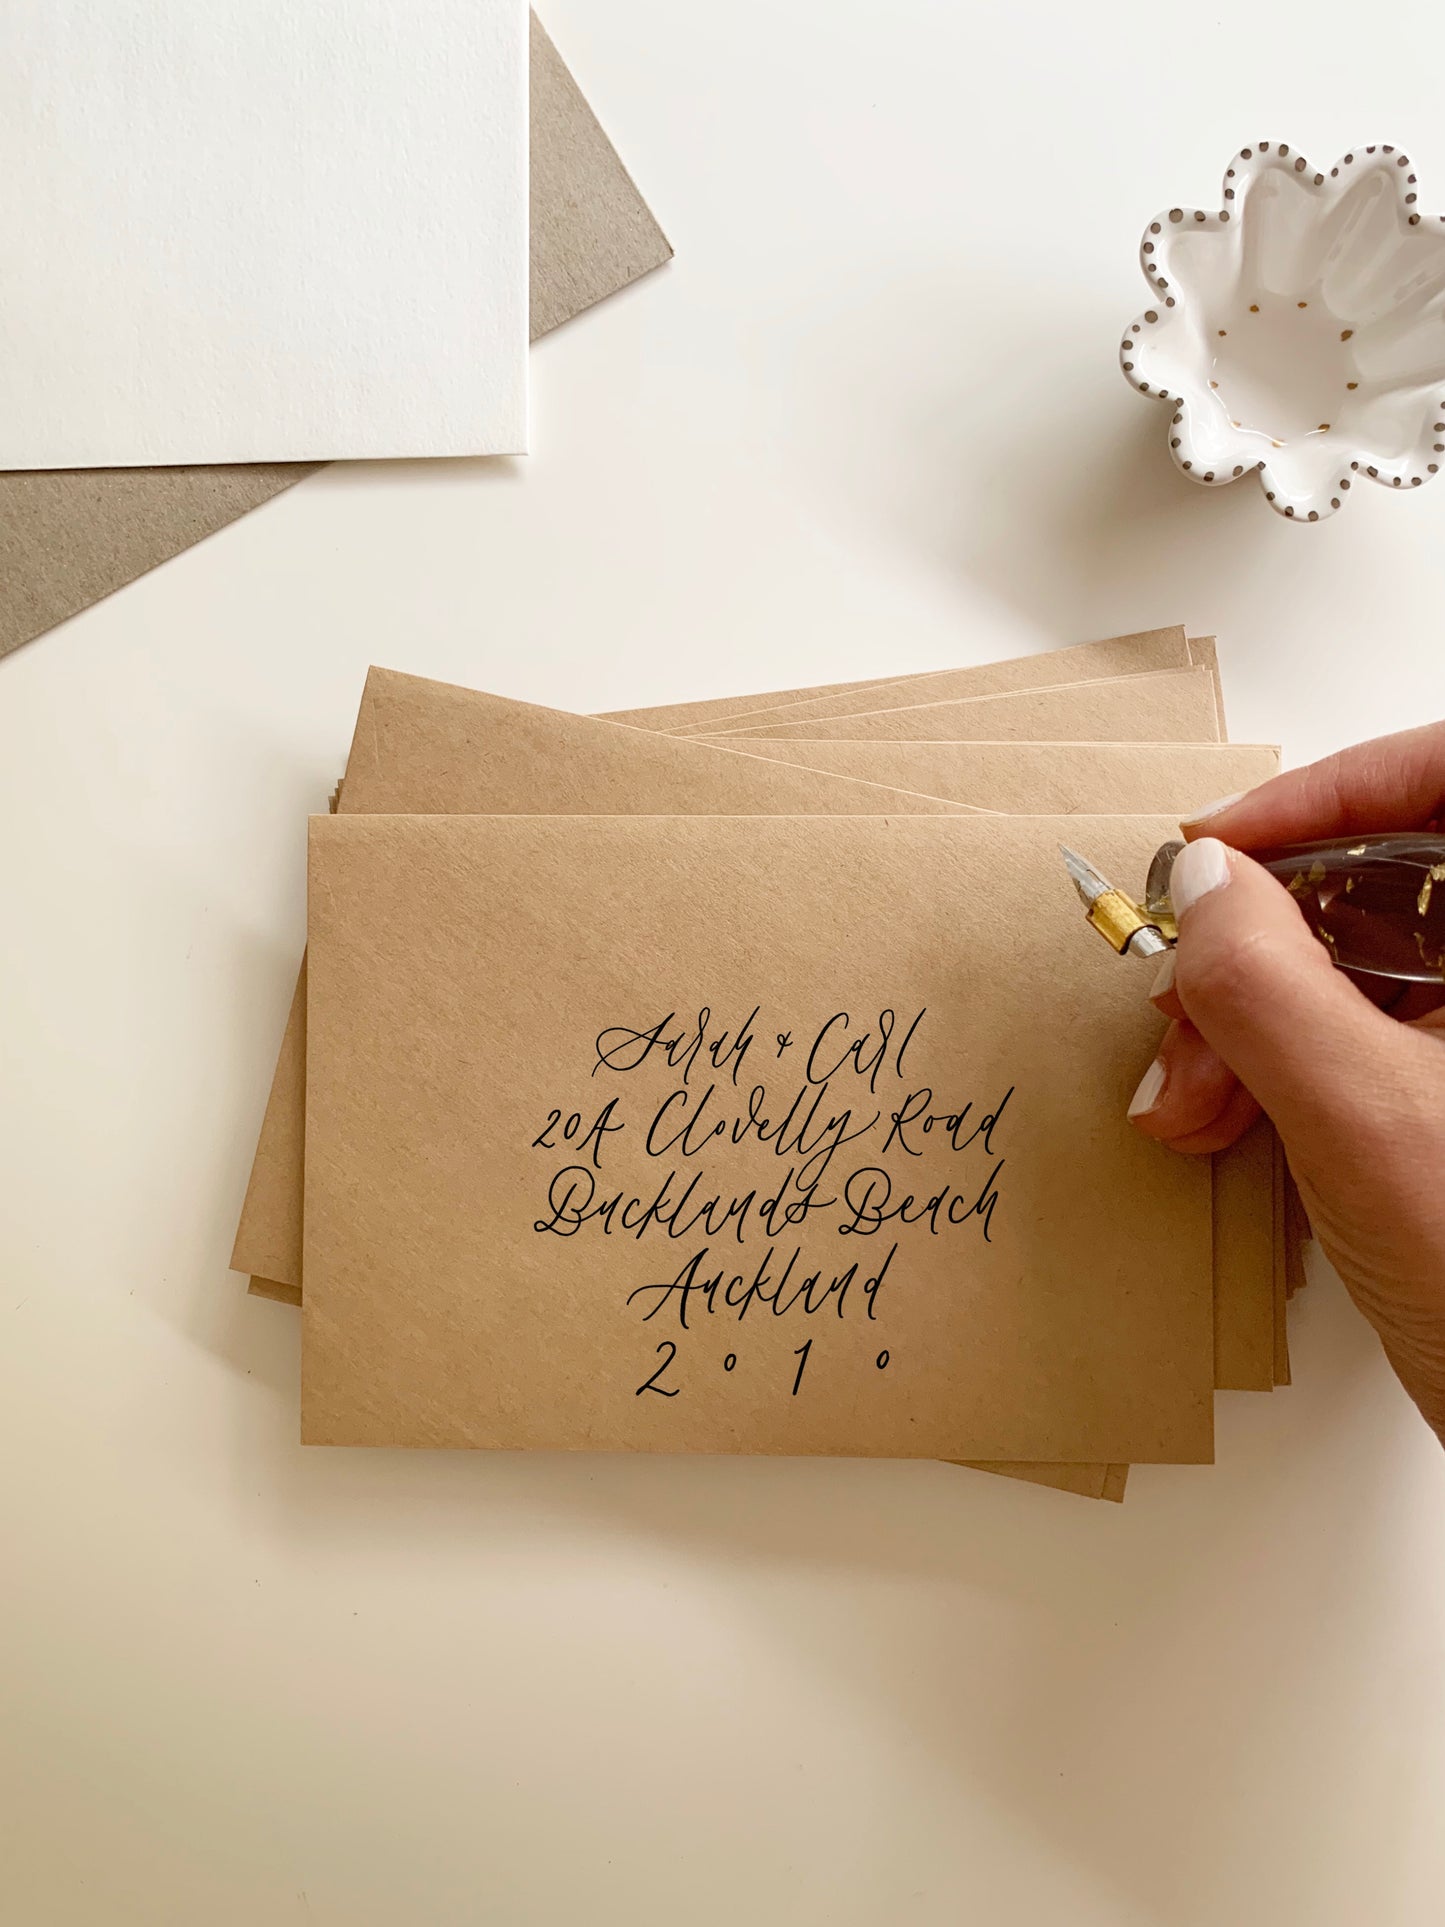 Sarah + Carl
20A Clovelly Road
Bucklands Beach
Auckland
2010